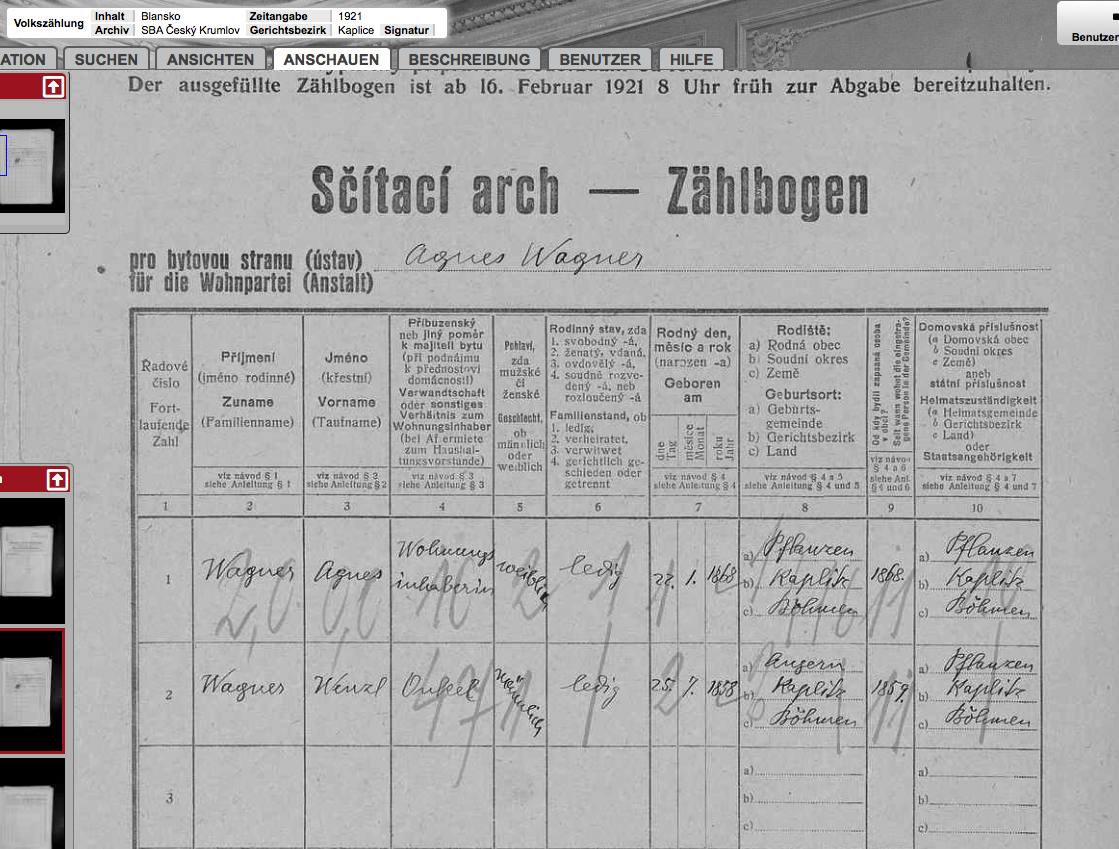 Volkszählung
Inhalt Blansko Zeitangabe 1921
Archiv SBA Český Krumlov Gerichtsbezirk Kaplice Signatur
Benutzer
ATION SUCHEN ANSICHTEN ANSCHAUEN BESCHREIBUNG BENUTZER HILFE
Der ausgefüllte Zählbogen ist ab 16. Februar 1921 8 Uhr früh zur Abgabe bereitzuhalten.
Sčítací arch — Zählbogen
pro bytovou stranu (ústav)
für die Wohnpartei (Anstalt)
Agnes Wagner
Řadové
číslo
Fort-
laufende
Zahl
Příjmení
(jméno rodinné)
Zuname
(Familienname)
viz návod § 1
siehe Anleitung § 1
Jméno
(křestní)
Vorname
(Taufname)
viz návod § 2
siehe Anleitung § 2
Příbuzenský
neb jiný poměr
k majiteli bytu
(při podnájmu
k přednostovi
domácnosti)
Verwandtschaft
oder sonstiges
Verhältnis zum
Wohnungsinhaber
(bei Af ermiete
zum Haushal-
tungsvorstande)
viz návod § 3
siehe Anleitung § 3
Pohlaví,
zda
mužské
či
ženské
Geschlecht,
ob
männlich
oder
weiblich
Rodinný stav, zda
1. svobodný -á,
2. ženatý, vdaná,
3. ovdovělý -á,
4. soudně rozve-
dený -á, neb
rozloučený -á
Familienstand, ob
1. ledig,
2. verheiratet,
3. verwitwet
4. gerichtlich ge-
schieden oder
getrennt
Rodný den,
měsíc a rok
(narozen -a)
Geboren
am
dne
Tag
měsíce
Monat
roku
Jahr
viz návod § 4
siehe Anleitung § 4
Rodiště:
a) Rodná obec
b) Soudní okres
c) Země
Geburtsort:
a) Geburts-
gemeinde
b) Gerichtsbezirk
c) Land
viz návod § 4 a 5
siehe Anleitung § 4 und 5
Od kdy bydlí zapsaná osoba
v obci?
Seit wann wohnt die eingetra-
gene Person in der Gemeinde?
viz návod
§ 4 a 6
siehe Anl.
§ 4 und 6
Domovská příslušnost
(a Domovská obec
b Soudní okres
c Země)
aneb
státní příslušnost
Heimatszuständigkeit
(a Heimatsgemeinde
b Gerichtsbezirk
c Land)
oder
Staatsangehörigkeit
viz návod § 4 a 7
siehe Anleitung § 4 und 7
1 2 3 4 5 6 7 8 9 10
1 Wagner Agnes Wohnungs
inhaberin weiblich ledig 22. 1. 1868
a) Pflanzen
b) Kaplitz
c) Böhmen
1868.
a) Pflanzen
b) Kaplitz
c) Böhmen
2 Wagner Wenzl Onkel männlich ledig 25. 7. 1838
a) Angern
b) Kaplitz
c) Böhmen
1859.
a) Pflanzen
b) Kaplitz
c) Böhmen
3
a) a)
b) b)
c) c)